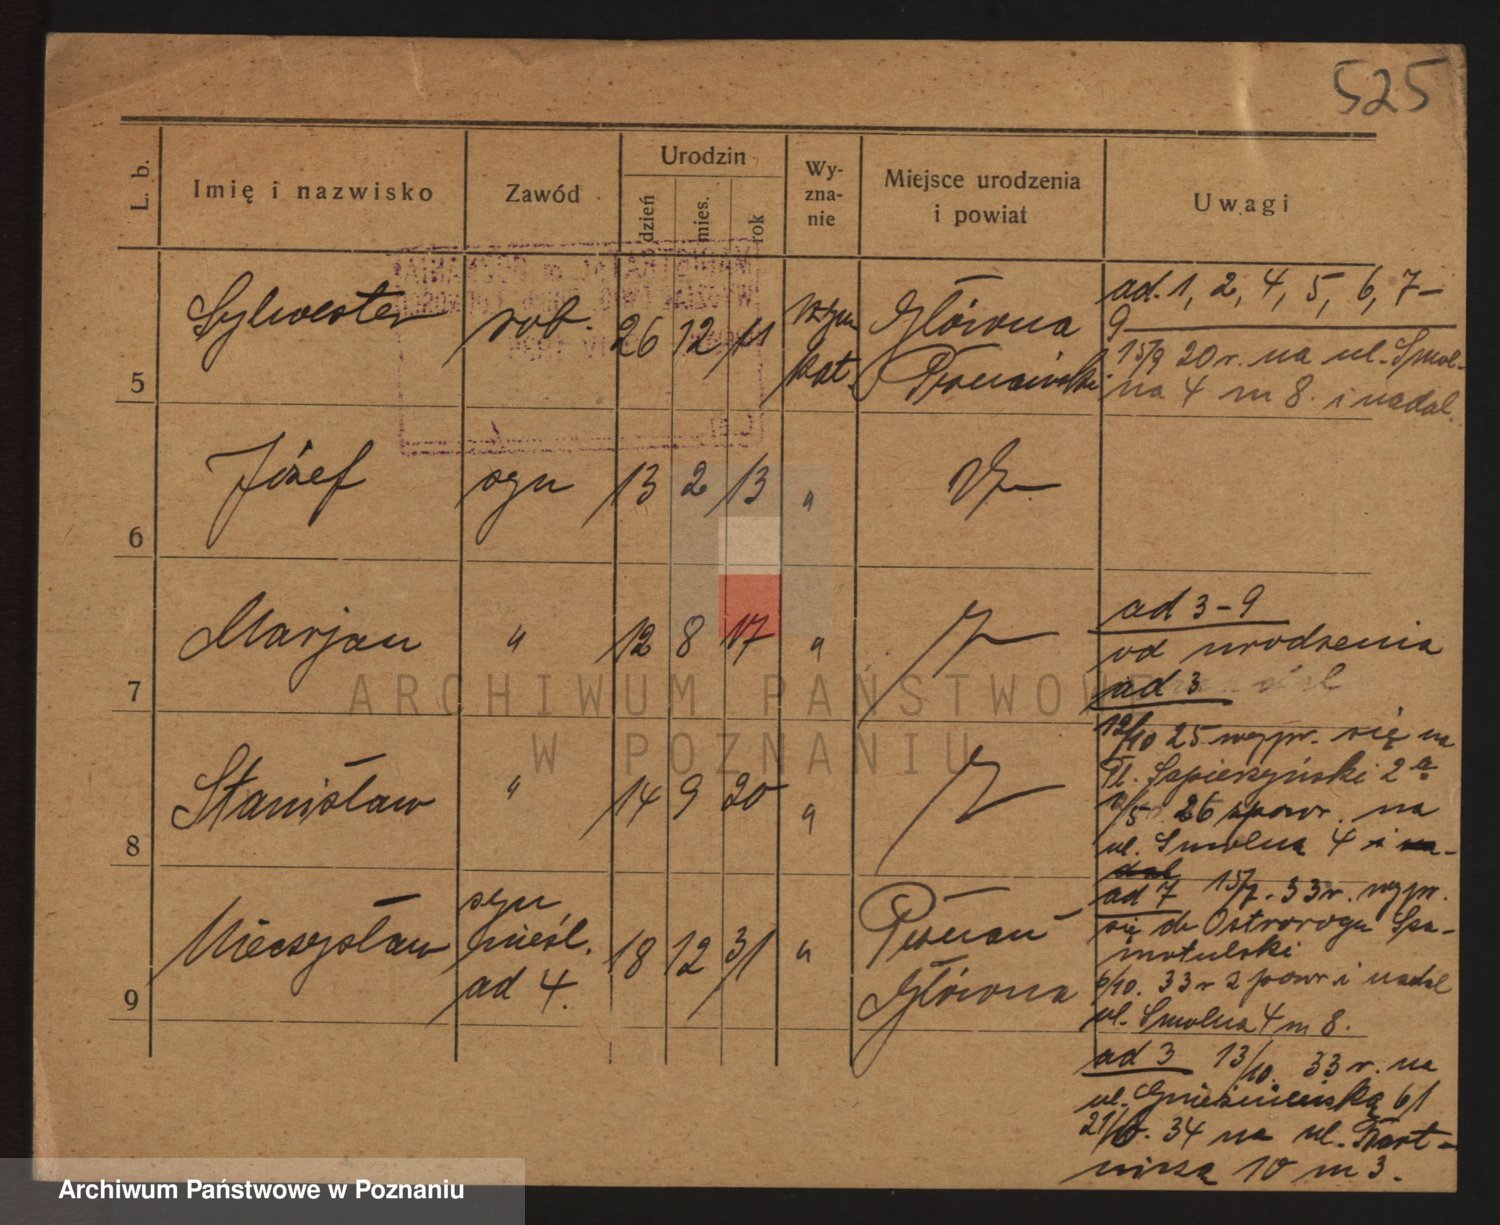 525
L. b.
Imię i nazwisko
Zawód
Urodzin
dzień
mies.
rok
Wy-
zna-
nie
Miejsce urodzenia
i powiat
Uwagi
5
Sylwester
rob.
26 12 11
rzym
kat.
Główna
Poznański
ad. 1, 2, 4, 5, 6, 7-
9
15/9 20 r. na ul. Smol-
na 4 m 8. i nadal.
6
Józef
syn
13 2 13
"
7
Marjan
"
12 8 17
"
ad 3-9
od urodzenia
ad 3
8
Stanisław
"
14 9 20
"
12/10 25 wypr. się na
Pl. Sapierzyński 2a
26 spowr. na
ul. Smolna 4 i na-
dal
9
Mieczysław
syn
nieśl.
ad 4.
18 12 31
"
Poznań
Główna
ad 7 15/7. 33 r. wypr.
się do Ostroroga Sza-
motulski
6/10. 33 r z powr i nadal
ul. Smolna 4 m 8.
ad 3 13/10. 33 r. na
ul. Gnieźnieńską 61
21/10. 34 na ul. Wart-
nicza 10 m 3.
ARCHIWUM PAŃSTWOWE
W POZNANIU
Archiwum Państwowe w Poznaniu